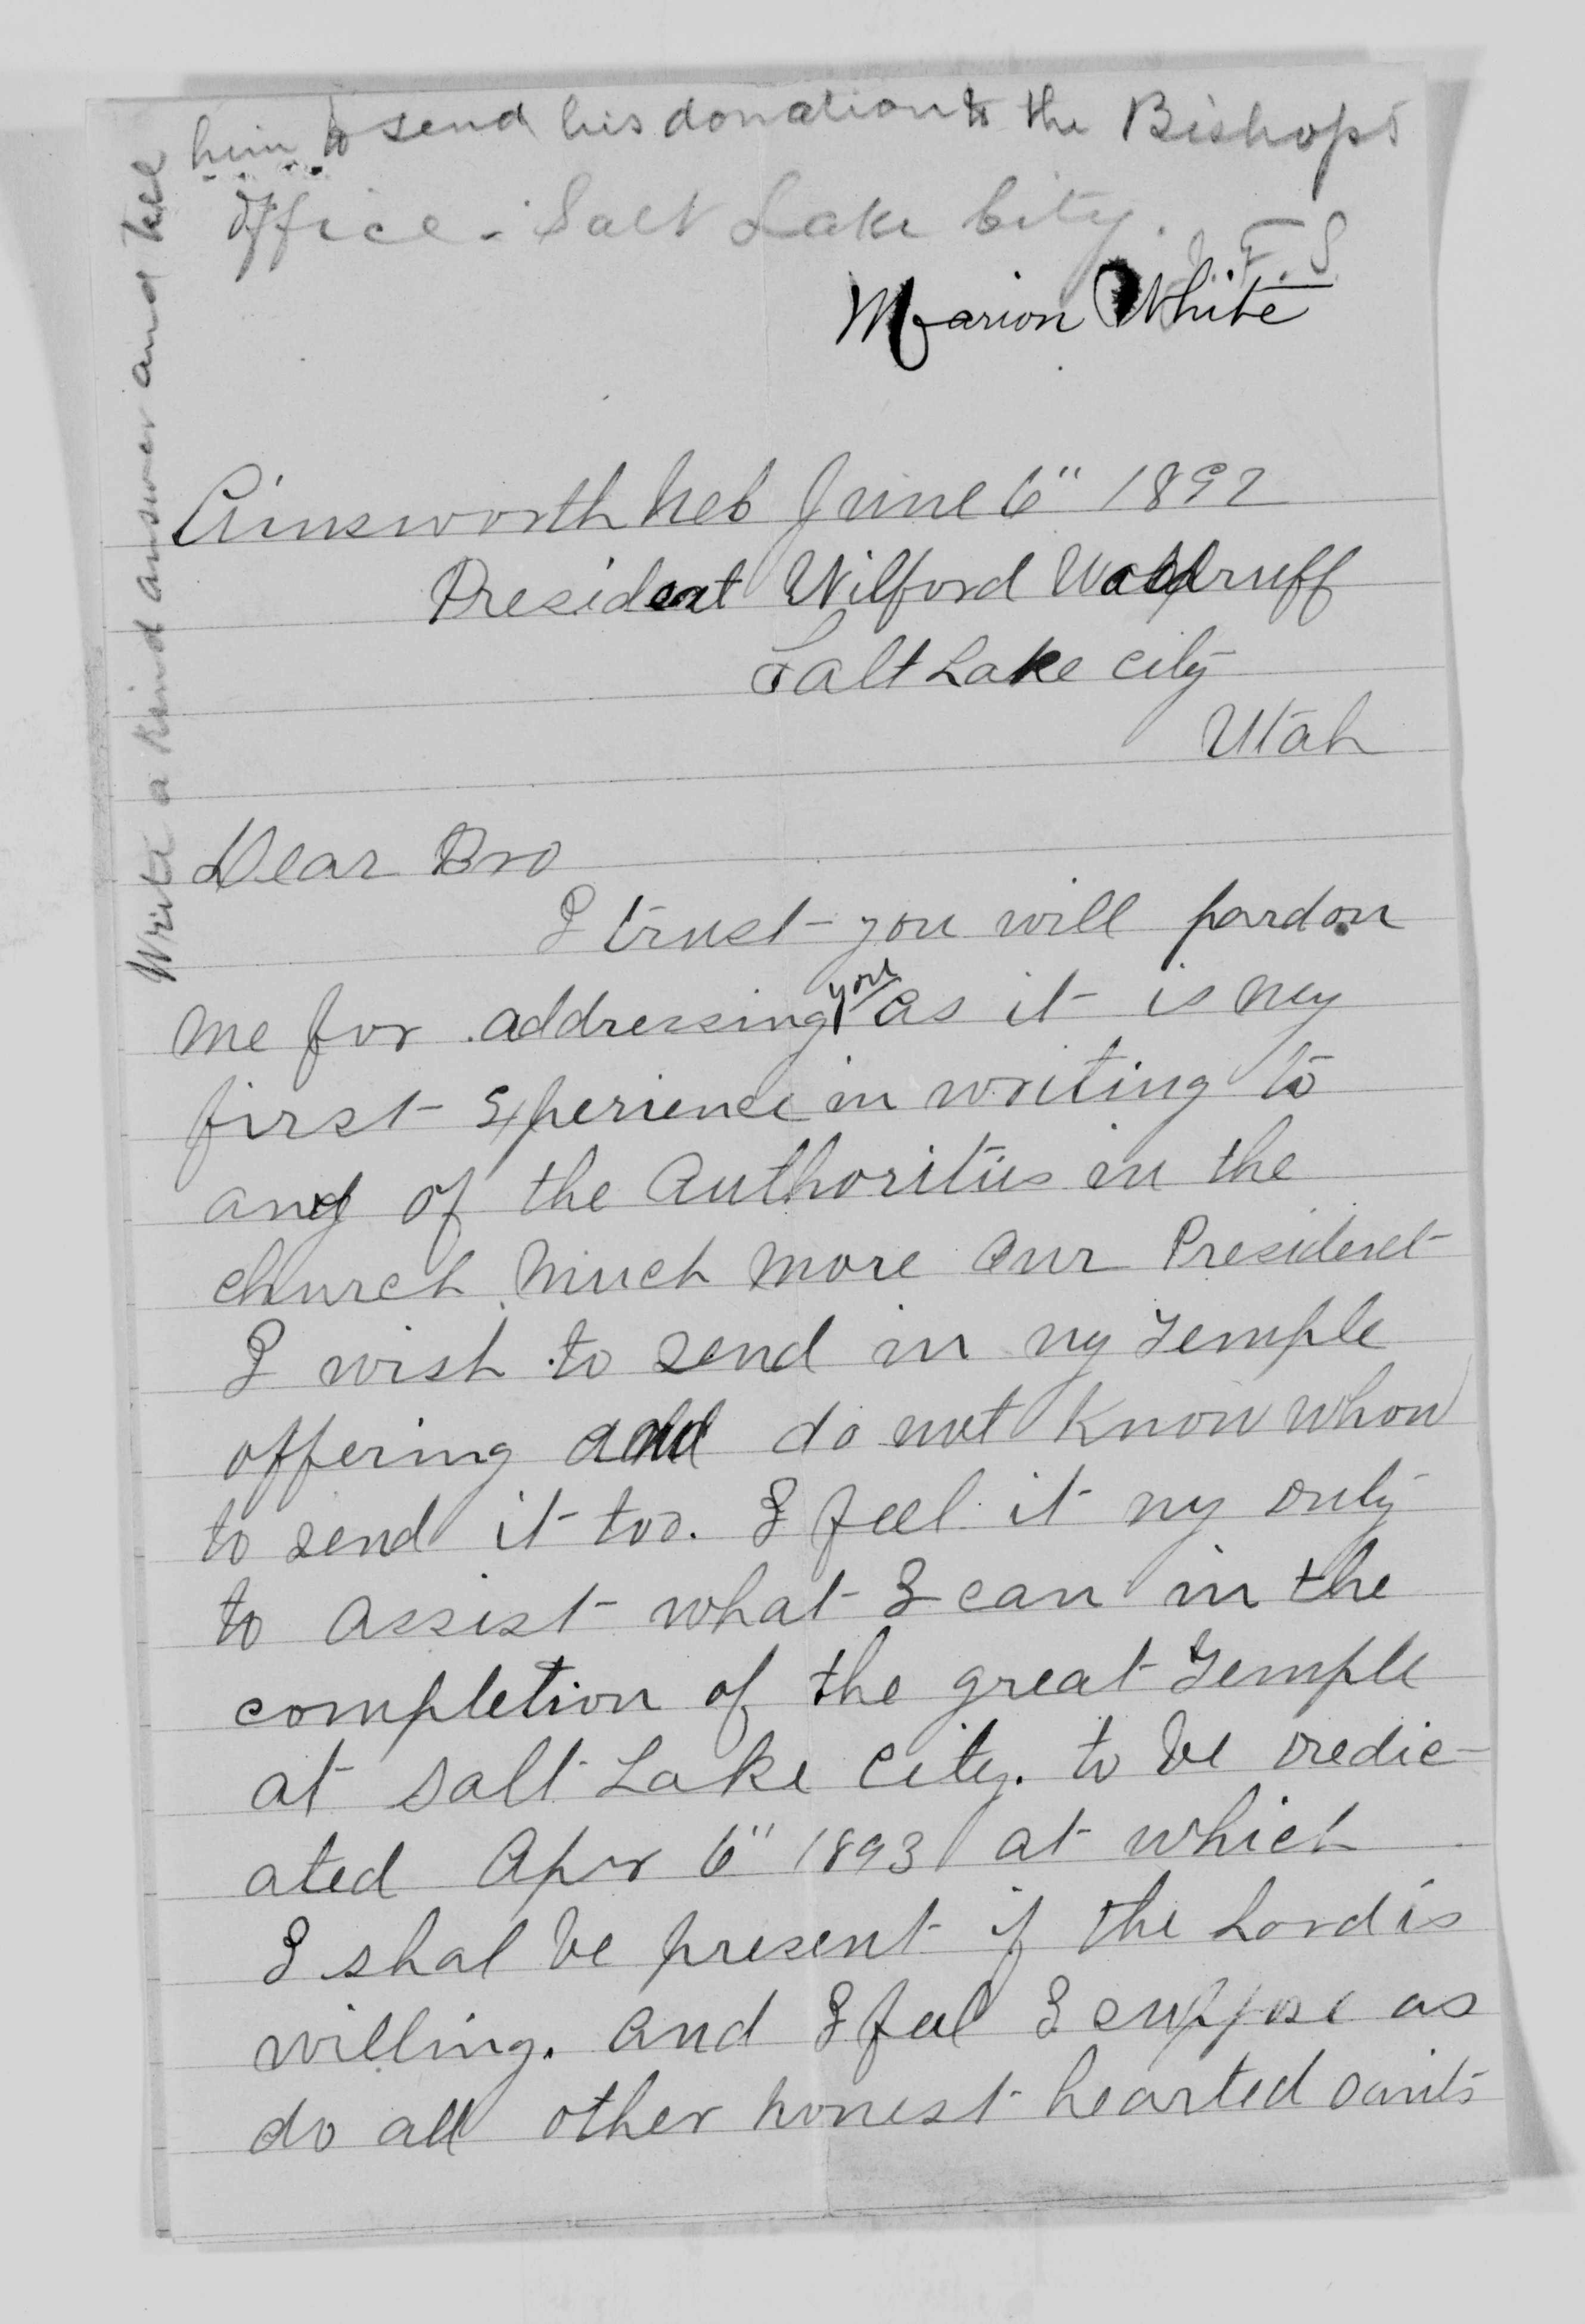 Write a kind answer and tell
him to send his donation to the Bishops
Office - Salt Lake City.
J. F. S
Marion White
Ainsworth Neb June 6" 1892
President Wilford Woodruff
Salt Lake City
Utah
Dear Bro
I trust you will pardon
me for addressing you as it is my
first experience in writing to
any of the Authorities in the
church much more our President
I wish to send in my Temple
offering and do not know whom
to send it too. I feel it my duty
to assist what I can in the
completion of the great Temple
at Salt Lake City. to be dedic-
ated Apr 6" 1893 at which
I shal be present if the Lord is
willing. and I feel I suppose as
do all other honest hearted saints